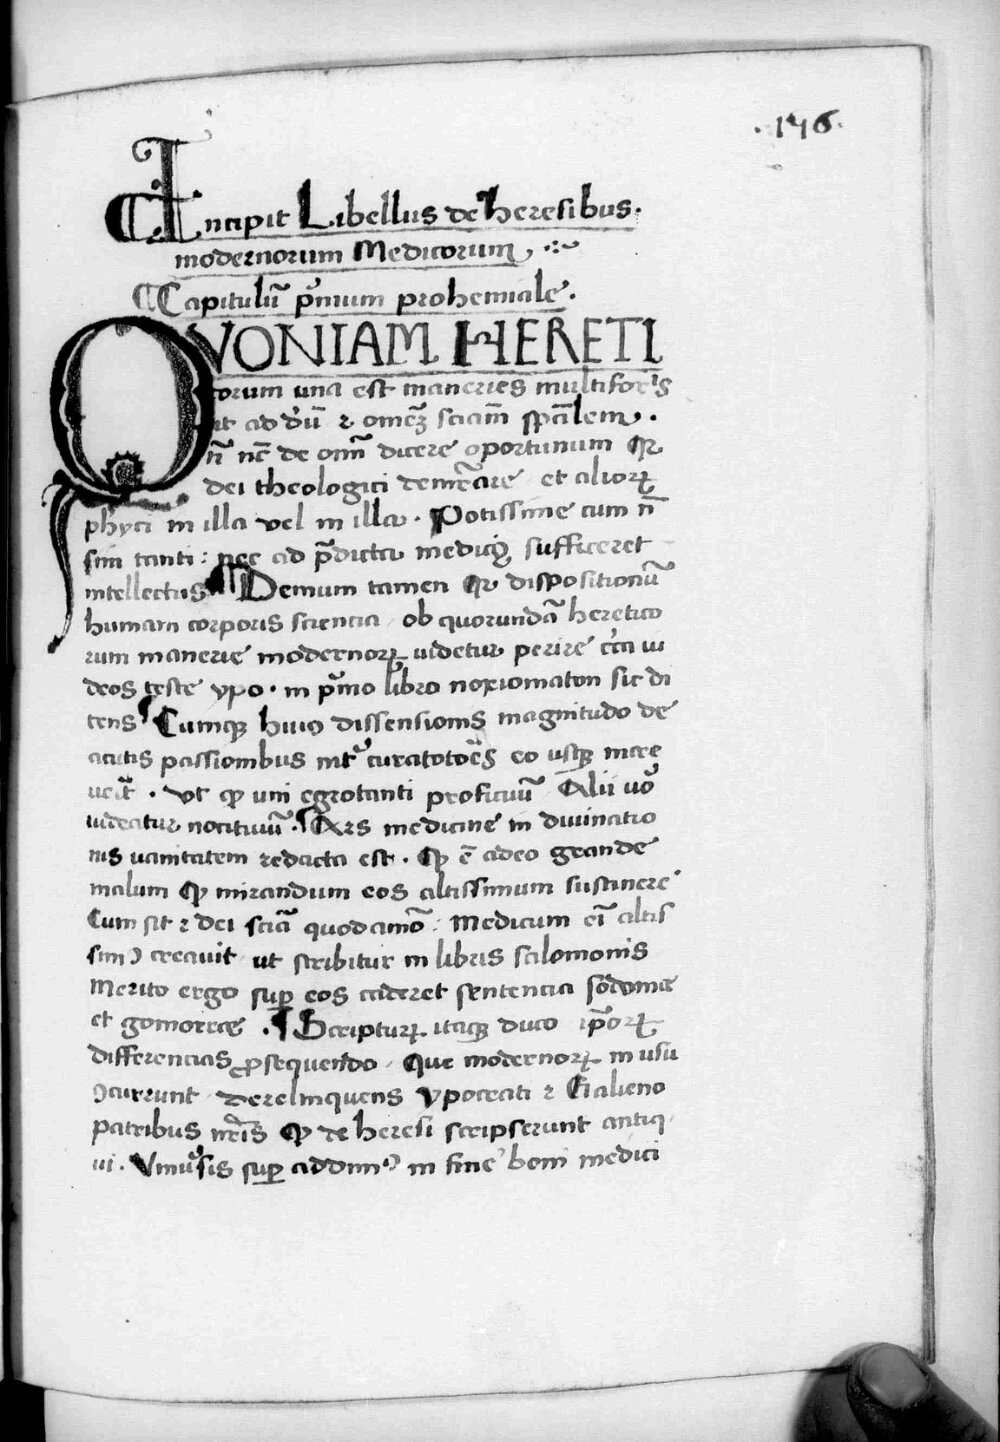 .146.
Incipit Libellus de heresibus.
modernorum Medicorum
Capitulū p̄mium prohemiale.
QVONIAM HERETI
corum una est maneries multiforīs
ut ad dm̄ ⁊ omēꝫ sciam̄ spālem.
nō nc̄ de omī dicere oportunum qꝛ
dei theologici et alioꝝ
phyci in illa vel in illa. Potissime cum n̄
sim tanti: nec ad p̄dicta sufficeret
intellectus ¶ Demum tamen qꝛ dispositionū
humani corporis sciencia ob quorundā heretico
rum manerie modernoꝝ videtur perire cc̄a ui
deos teste ypo. in p̄mo libro noxiomaton sic di
cens Cumqꝫ huiꝰ dissensionis magnitudo de
acutis passionibus int̄ curatoōes eo usqꝫ incre
Vt ꝙ uni egrotanti proficuū Alii uō
videatur nocituuū. ¶ Ars medicine in diuinatio
nis uanitatem redacta est. ꝙ ē adeo grande
malum ꝙ mirandum eos altissimum sustinere
Cum sit ⁊ dei sciā quodamō: Medicum eī altis
simꝰ creauit ut scribitur in libris salomonis
Merito ergo suꝑ eos caderet sentencia sodome
et gomorre. ¶ Scripturꝝ itaqꝫ duco ip̄oꝝ
differencias ꝓsequendo. Que modernoꝝ in usu
ꝯcurrunt derelinquens ypocrati ⁊ Galieno
patribus nr̄is ꝙ de heresi scripserunt antiq
ui. suꝑ addimꝰ in fine boni medici